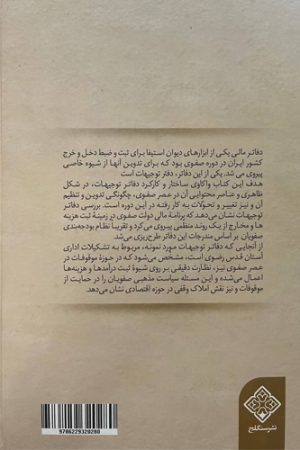 دفاتر مالی یکی از ابزارهای دیوان استیفا برای ثبت و ضبط دخل و خرج
کشور ایران در دوره صفوی بود که برای تدوین آنها از شیوه خاصی
پیروی می شد. یکی از این دفاتر، دفتر توجیهات است
هدف این کتاب واکاوی ساختار و کارکرد دفاتر توجیهات، در شکل
ظاهری و عناصر محتوایی آن در عصر صفوی، چگونگی تدوین و تنظیم
آن و نیز تغییر و تحولات به کار رفته در این دوره است. بررسی دفاتر
توجیهات نشان می‌دهد که برنامه مالی دولت صفوی در زمینهٔ ثبت هزینه
ها و مخارج از یک روند منظمی پیروی می کرد و تقریباً نظام بودجه‌بندی
صفویان بر اساس مندرجات این دفاتر طرح‌ریزی می‌شد.
از آنجایی که دفاتر توجیهات مورد نمونه، مربوط به تشکیلات اداری
آستان قدس رضوی است، مشخص می‌شود که در حوزهٔ موقوفات در
عصر صفوی نیز، نظارت دقیقی بر روی شیوهٔ ثبت درآمدها و هزینه‌ها
اعمال می‌شده و این مسئله سیاست مذهبی صفویان را در حمایت از
موقوفات و نیز نقش املاک وقفی در حوزه اقتصادی نشان می‌دهد.
9786229320280
نشر سنگلج